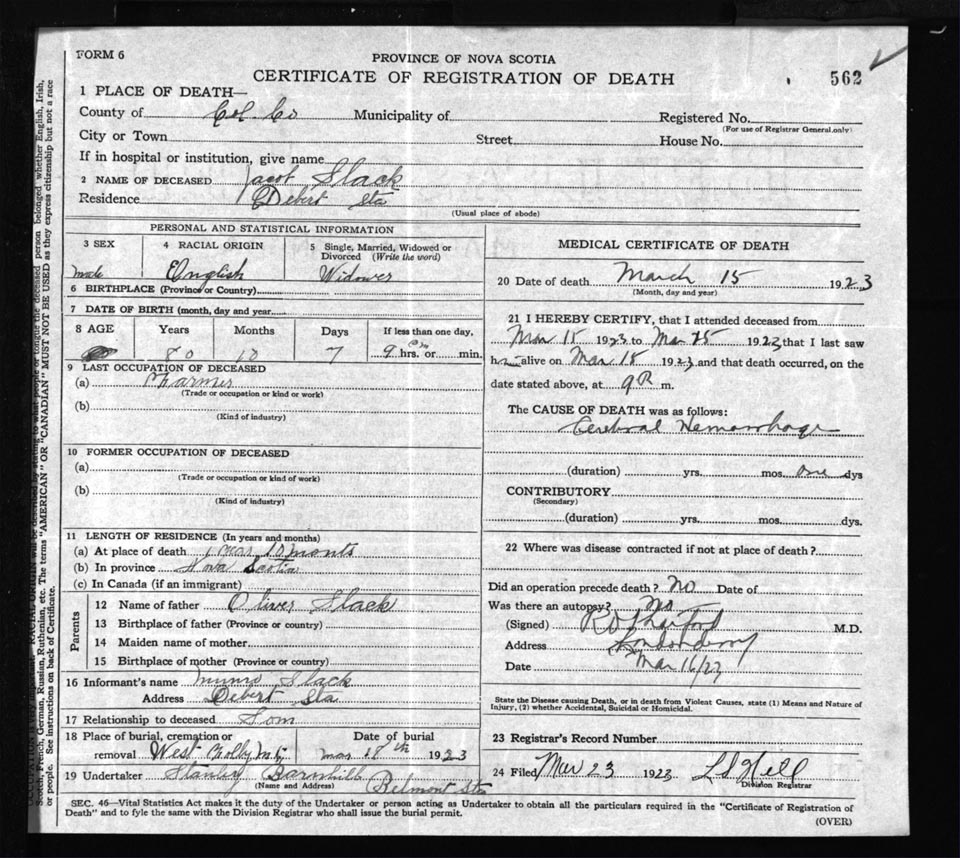 FORM 6
PROVINCE OF NOVA SCOTIA
CERTIFICATE OF REGISTRATION OF DEATH
562
1 PLACE OF DEATH—
County of Col. Co Municipality of
Registered No.
(For use of Registrar General only)
City or Town Street House No.
If in hospital or institution, give name
2 NAME OF DECEASED Jacob Slack
Residence Debert Sta
(Usual place of abode)
PERSONAL AND STATISTICAL INFORMATION
3 SEX 4 RACIAL ORIGIN 5 Single, Married, Widowed or Divorced (Write the word)
male English Widower
6 BIRTHPLACE (Province or Country)
7 DATE OF BIRTH (month, day and year
8 AGE Years Months Days If less than one day,
80 10 7 9 hrs. or min.
9 LAST OCCUPATION OF DECEASED
(a) Farmer
(Trade or occupation or kind or work)
(b)
(Kind of industry)
10 FORMER OCCUPATION OF DECEASED
(a)
(Trade or occupation or kind of work)
(b)
(Kind of industry)
11 LENGTH OF RESIDENCE (In years and months)
(a) At place of death 10 months
(b) In province Nova Scotia
(c) In Canada (if an immigrant)
Parents
12 Name of father Oliver Slack
13 Birthplace of father (Province or country)
14 Maiden name of mother
15 Birthplace of mother (Province or country)
16 Informant's name Munro Slack
Address Debert Sta
17 Relationship to deceased Son
18 Place of burial, cremation or removal West
Date of burial Mar 18th 1923
19 Undertaker Stanley Barnhill Belmont Sta
(Name and Address)
MEDICAL CERTIFICATE OF DEATH
20 Date of death March 15 1923
(Month, day and year)
21 I HEREBY CERTIFY, that I attended deceased from
Mar 15 1923 to Mar 1923 that I last saw
him alive on Mar 15 1923 and that death occurred, on the
date stated above, at 9 P m.
The CAUSE OF DEATH was as follows:
Cerebral Hemorrhage
(duration) yrs. mos. one dys
CONTRIBUTORY
(Secondary)
(duration) yrs. mos. dys.
22 Where was disease contracted if not at place of death?
Did an operation precede death? No Date of
Was there an autopsy? No
(Signed) M.D.
Address Londonderry
Date Mar 16/23
State the Disease causing Death, or in death from Violent Causes, state (1) Means and Nature of
Injury, (2) whether Accidental, Suicidal or Homicidal.
23 Registrar's Record Number
24 Filed Mar 23 1923 Hill
Division Registrar
SEC. 46—Vital Statistics Act makes it the duty of the Undertaker or person acting as Undertaker to obtain all the particulars required in the "Certificate of Registration of
Death" and to fyle the same with the Division Registrar who shall issue the burial permit.
(OVER)
Scotch, French, German, Russian, Ruthenian, etc. The terms "AMERICAN" OR "CANADIAN" MUST NOT BE USED as they express citizenship but not a race
or people. See instructions on back of Certificate.